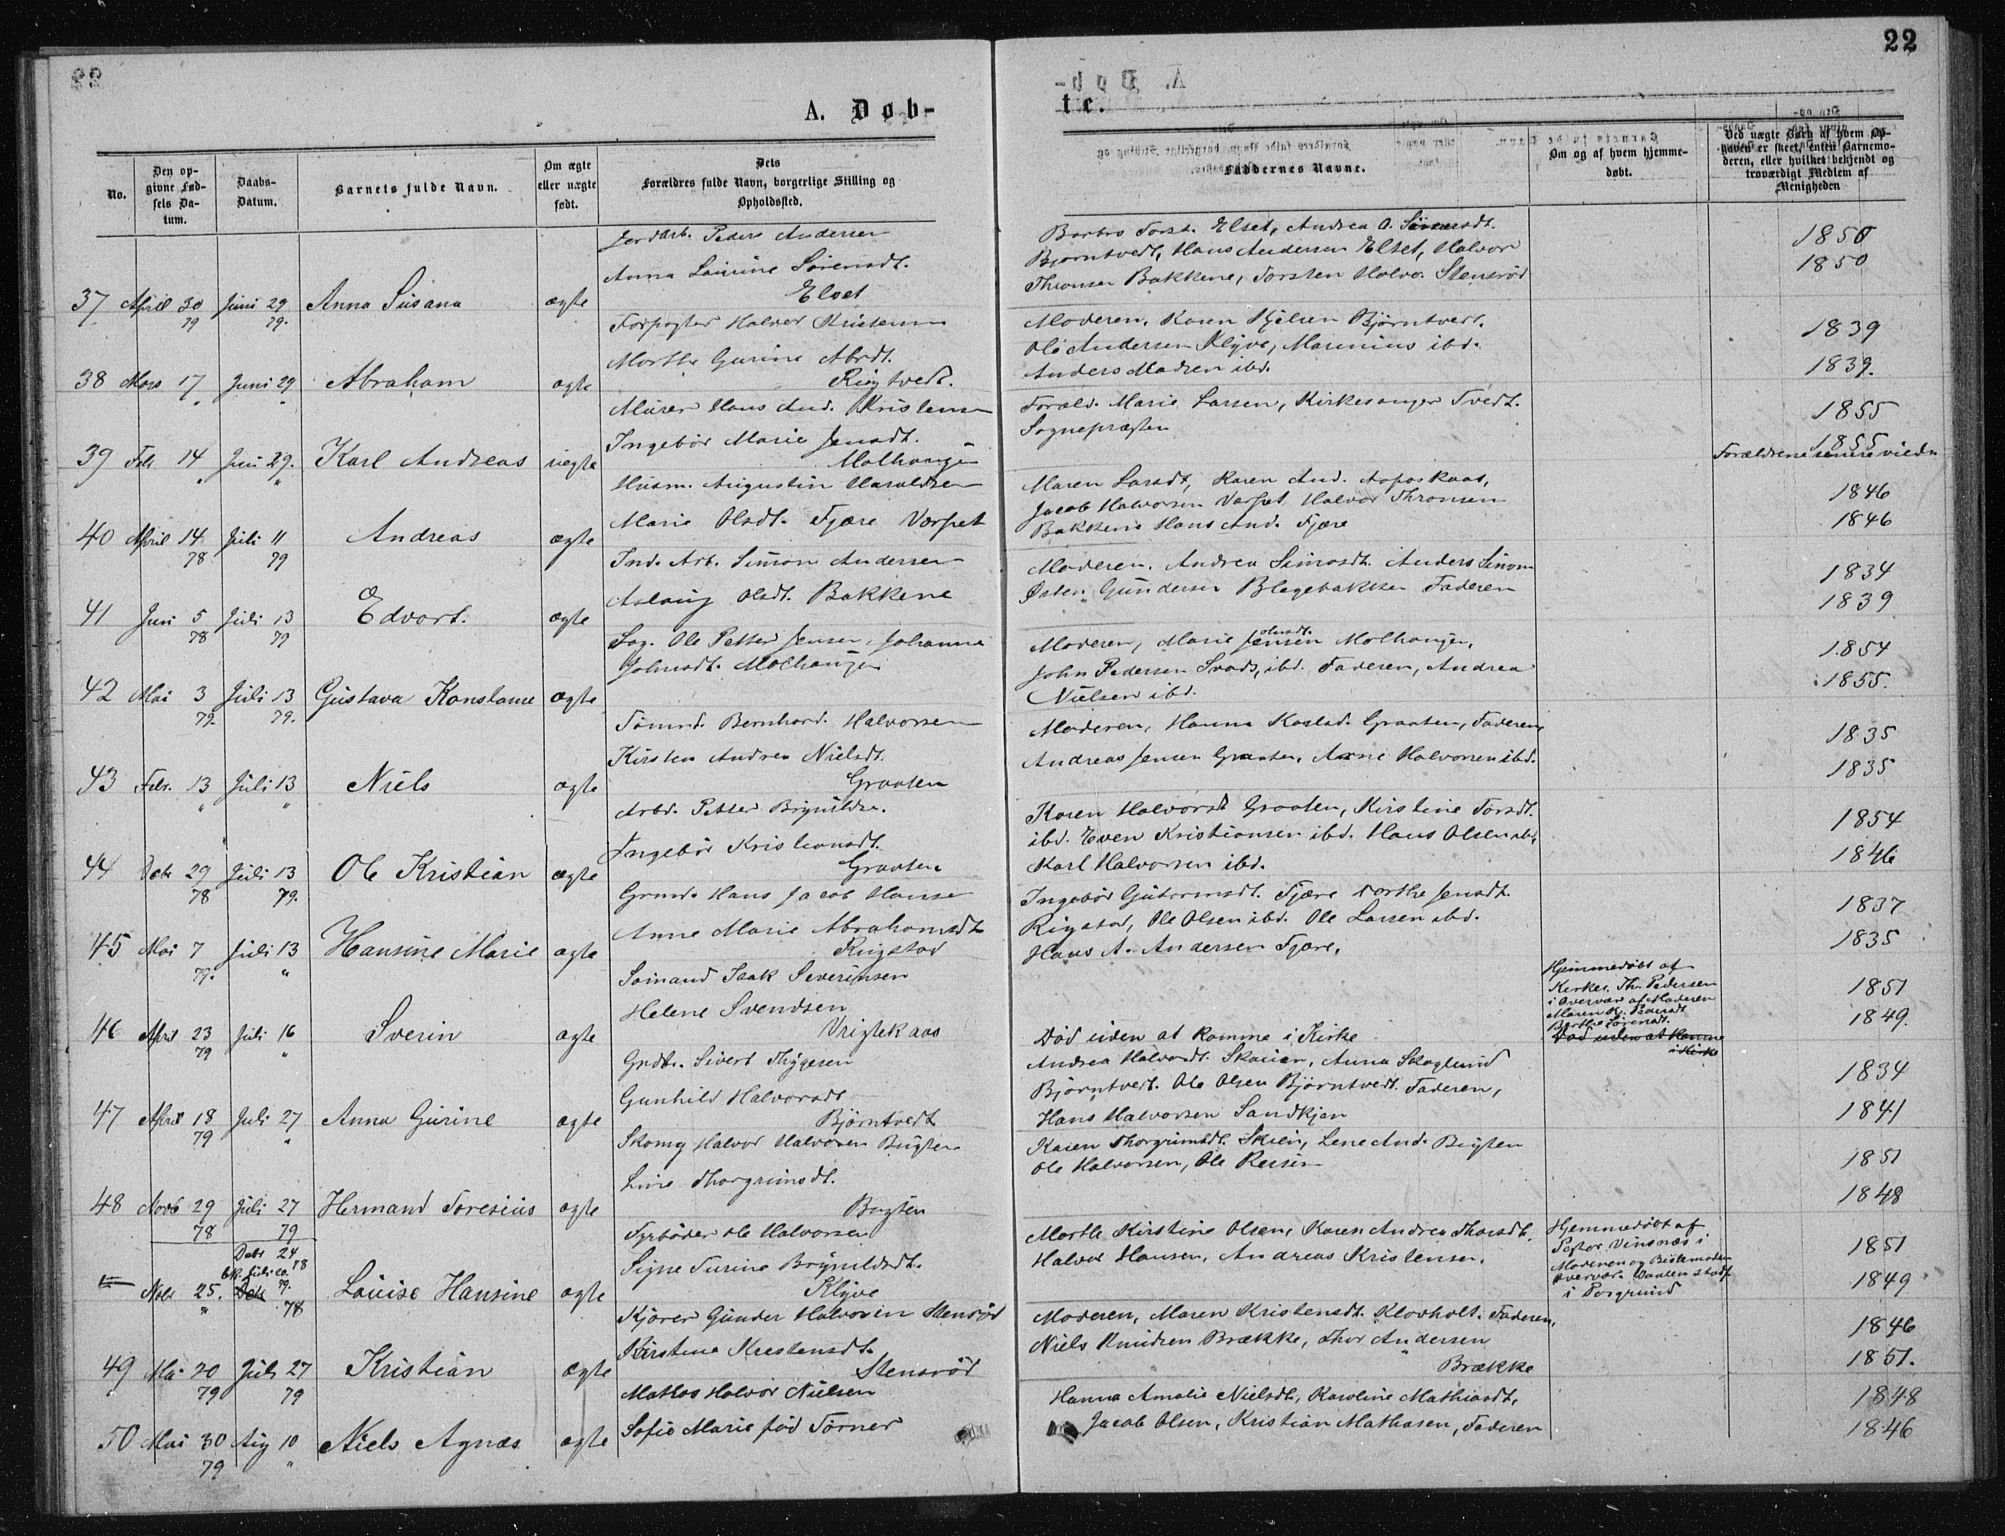 22
A. Døb-
te.
No.
Den op-
givne Fød-
sels Da-
tum.
Daabs-
Datum.
Barnets fulde Navn.
Om ægte
eller uægte
født.
Dets
Forældres fulde Navn, borgerlige Stilling og
Opholdssted.
Faddernes Navne.
Om og af hvem hjemme-
døbt.
Ved uægte Børn af hvem Op-
gaven er skeet, enten Barnemo-
deren, eller hvilket bekjendt og
troværdigt Medlem af
Menigheden
Jordarb. Peders Andersen
Anna Laurine Sørensdt.
37 April 30 Juni 29 Anna Susana ægte Elset
79 79.
Barbro Torst. Elset, Andrea O. Simonsdt. 1850
Bjørntvedt, Hans Andersen Elset, Halvor 1850
Thronsen Bakkene, Torsten Halvo. Stensrød
Forpagter Halvor Kristensen
Marthe Gurine Abrdt.
38 Mars 17 Juni 29 Abraham ægte Rigtvedt.
" "
Moderen, Karen Kjelsen Bjørntvedt. 1839
Ole Andersen Klyve, Marinius ibd. 1839.
Anders Madsen ibd.
Murer Hans And. Kristensen
Ingebør Marie Jensdt.
39 Feb. 14 Juni 29. Karl Andreas uægte Molhaugen
" "
Foræld. Marie Larsen, Kirkesanger Tvedt. 1855
Sognepræsten 1855
Forældrene senere viede
Husm. Augustin Haraldsen
Marie Olsdt. Fjære Varpet
40 April 14 Juli 11 Andreas ægte
78 79
Maren Larsdt, Karen And. Aaposkaas, 1846
Jacob Halvorsen Varpet, Halvor Thronsen 1846
Bakkene Hans And. Fjære
Ind. Arb. Simon Andersen
Aslaug Olsdt. Bakkene
41 Juni 5 Juli 13 Edvart. ægte
78 79
Moderen. Andrea Simosdt. Anders Simon 1834
Østen Gundersen Blegebakken Faderen 1839
Sag. Ole Petter Jensen, Johanna
Johnsdt. Molhaugen
42 Mai 3 Juli 13 Gustava Konstanse ægte
79. 79.
Moderen, Marie Jensen Molhaugen, 1854
John Pedersen Svads, ibd. Faderen, Andrea 1855.
Nielsen ibd.
Tømmd. Bernhard. Halvorsen
Kirsten Andrea Nielsdt.
43 Febr. 13 Juli 13 Niels ægte Graaten
" "
Moderen, Hanna Karlsd. Graaten, Faderen, 1835
Andreas Jensen Graaten, Arne Halvorsen ibd. 1835
Arbd. Petter Brynildsen.
Ingebør Kristiansdt.
44 Debr 29 Juli 13 Ole Kristian ægte Graaten
78 79.
Karen Halvorsdt Graaten, Kirstine Torsdt. 1854
ibd. Even Kristiansen ibd. Hans Olsen ibd, 1846
Karl Halvorsen ibd.
Grund. Hans Jacob Hansen
Anne Marie Abrahamsdt
45 Mai 7 Juli 13 Hansine Marie ægte Rugstad
79. "
Ingebør Gutormsdt. Fjære Dorthe Jensdt. 1837
Rigstad, Ole Olsen ibd. Ole Larsen ibd. 1835
Hans A. Andersen Fjære.
Sømand Isak Severinsen
Helene Svendsen
46 April 23 Juli 16 Sverin ægte Vrigtekaas
79 "
Død uden at komme i Kirke
Hjemmedøbt af 1851
Kirkes. Th. Pedersen 1849.
i Overvær af Moderen
Maren Kj. Pedersdt.
Berthe Sørensdt.
Død uden at komme
i Kirke
Grdbr. Sivert Thygesen
Gunhild Halvorsdt
47 April 18 Juli 27 Anna Gurine ægte Bjørntvedt
79 "
Andrea Halvorsdt. Skauen, Anna Skoglund 1834
Bjørntvedt. Ole Olsen Bjørntvedt. Faderen, 1841
Hans Halvorsen Sandkjen
Skomg Halvor Halvorsen Bugten
Line Thorgrimsdt.
48 Novb 29 Juli 27 Hermand Toresius ægte Bugten
78 79
Karen Thorgrimsdt. Skien, Lene And. Bugten 1851
Ole Halvorsen, Ole Reiersen 1848
Fyrbøder Ole Halvorsen
Signe Turine Brynildsdt.
Debr 24 78
bk. Juli 20 79.
Nobr 25. Debr Louise Hansine ægte Klyve
" 78
Marthe Kirstine Olsen, Karen Andrea Thorsdt.
Halvor Hansen, Andreas Kristensen.
Hjemmedøbt af 1851
Pastor Vinsnæs i 1849
Moderen og Bistemoderen
Overvær. Daaben stadf.
i Porsgrund
Kjører Gunder Halvorsen Stensrød
Kirstine Krestensdt.
49 Mai 20 Juli 27 Kristian ægte Stensrød
79 79
Moderen, Maren Kristensdt. Klovholt. Faderen, 1846
Niels Knudsen Brække, Thor Andersen 1851.
Brække
Mathos Halvor Nielsen
Sofie Marie fød Tørner
50 Mai 30 Aug 10 Niels Agnæs ægte
79 "
Hanna Amalie Nielsdt, Karoline Mathiasdt, 1848
Jacob Olsen, Kristian Mathasen, Faderen 1846